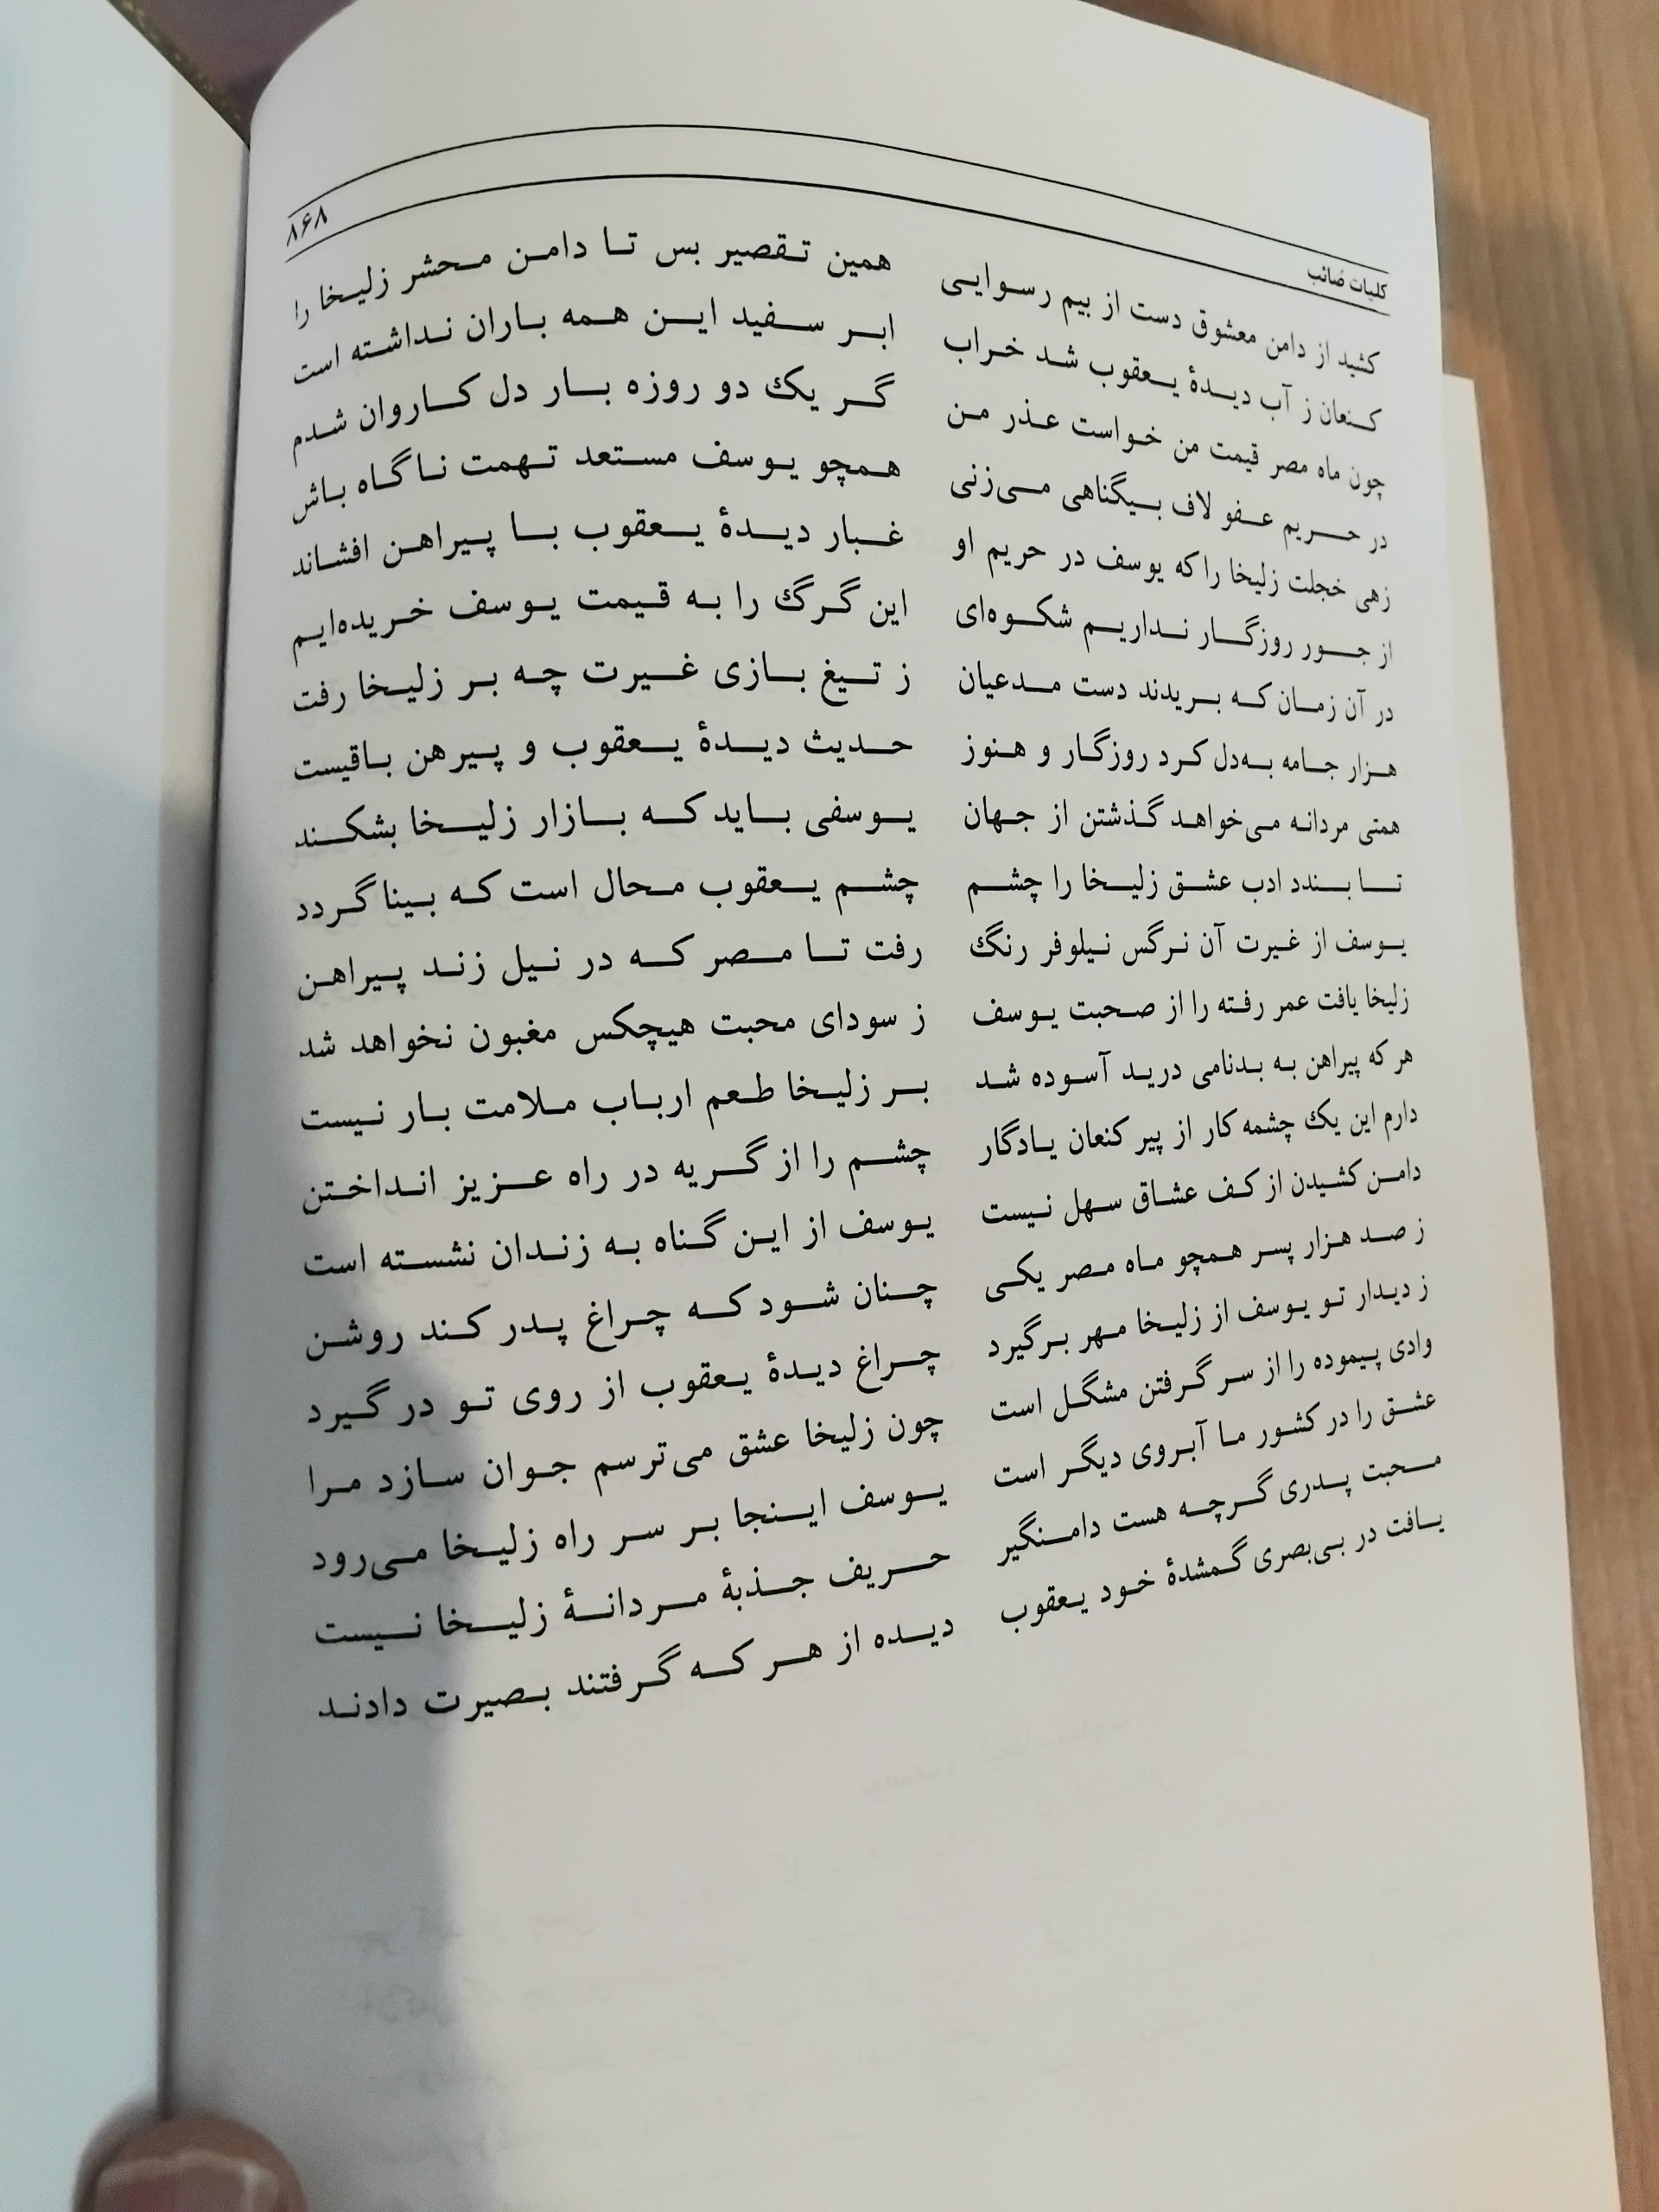 کلیات صائب ۸۶۸
کشید از دامن معشوق دست از بیم رسوایی همین تقصیر بس تا دامن محشر زلیخا را
کنعان ز آب دیدهٔ یعقوب شد خراب ابر سفید این همه باران نداشته است
چون ماه مصر قیمت من خواست عذر من گر یک دو روزه بار دل کاروان شدم
در حریم عفو لاف بیگناهی می‌زنی همچو یوسف مستعد تهمت ناگاه باش
زهی خجلت زلیخا را که یوسف در حریم او غبار دیدهٔ یعقوب با پیراهن افشاند
از جور روزگار نداریم شکوه‌ای این گرگ را به قیمت یوسف خریده‌ایم
در آن زمان که بریدند دست مدعیان ز تیغ بازی غیرت چه بر زلیخا رفت
هزار جامه به‌دل کرد روزگار و هنوز حدیث دیدهٔ یعقوب و پیرهن باقیست
همتی مردانه می‌خواهد گذشتن از جهان یوسفی باید که بازار زلیخا بشکند
تا بندد ادب عشق زلیخا را چشم چشم یعقوب محال است که بینا گردد
یوسف از غیرت آن نرگس نیلوفر رنگ رفت تا مصر که در نیل زند پیراهن
زلیخا یافت عمر رفته را از صحبت یوسف ز سودای محبت هیچکس مغبون نخواهد شد
هر که پیراهن به بدنامی درید آسوده شد بر زلیخا طعم ارباب ملامت بار نیست
دارم این یک چشمه کار از پیر کنعان یادگار چشم را از گریه در راه عزیز انداختن
دامن کشیدن از کف عشاق سهل نیست یوسف از این گناه به زندان نشسته است
ز صد هزار پسر همچو ماه مصر یکی چنان شود که چراغ پدر کند روشن
ز دیدار تو یوسف از زلیخا مهر برگیرد چراغ دیدهٔ یعقوب از روی تو در گیرد
وادی پیموده را از سر گرفتن مشگل است چون زلیخا عشق می‌ترسم جوان سازد مرا
عشق را در کشور ما آبروی دیگر است یوسف اینجا بر سر راه زلیخا می‌رود
محبت پدری گرچه هست دامنگیر حریف جذبهٔ مردانهٔ زلیخا نیست
یافت در بی‌بصری گمشدهٔ خود یعقوب دیده از هر که گرفتند بصیرت دادند